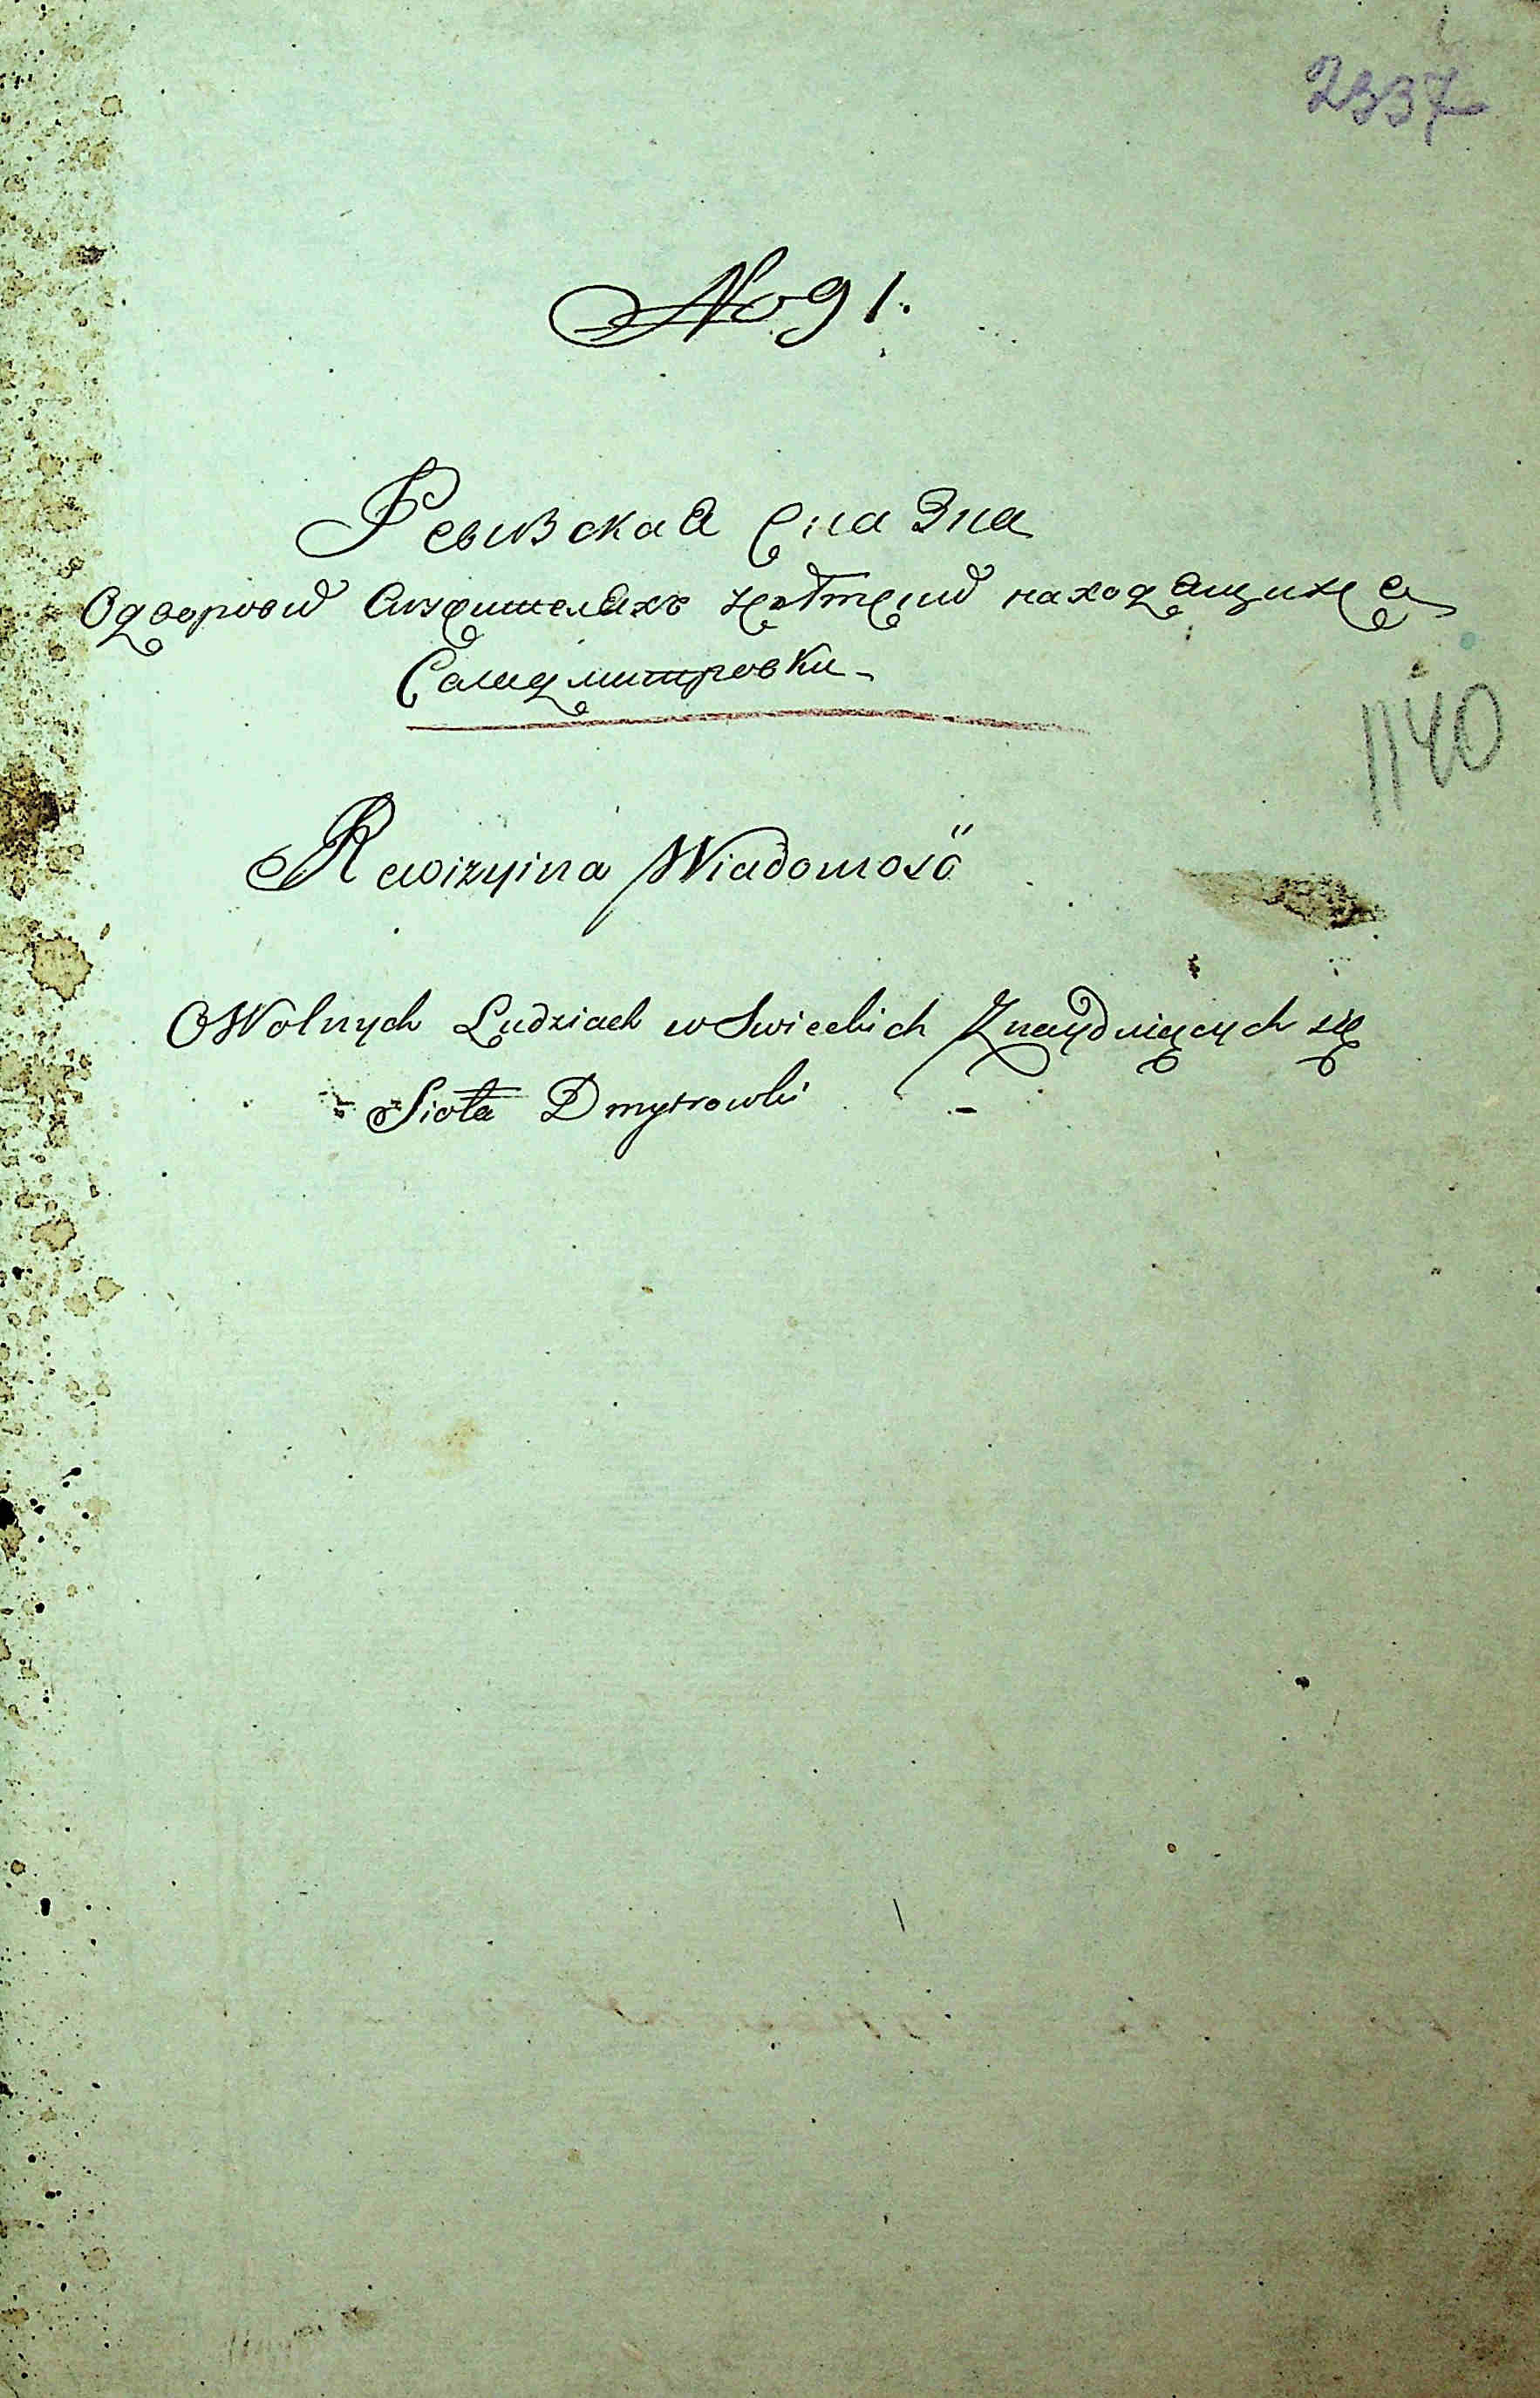 2337
No 91.
Ревизская Сказка
О дворовы
находящихся
Села Дмитровки
1140
Rewizyina Wiadomość
O Wolnych Ludziach w Swieckich Znayduiących się
Sioła Dmytrowki